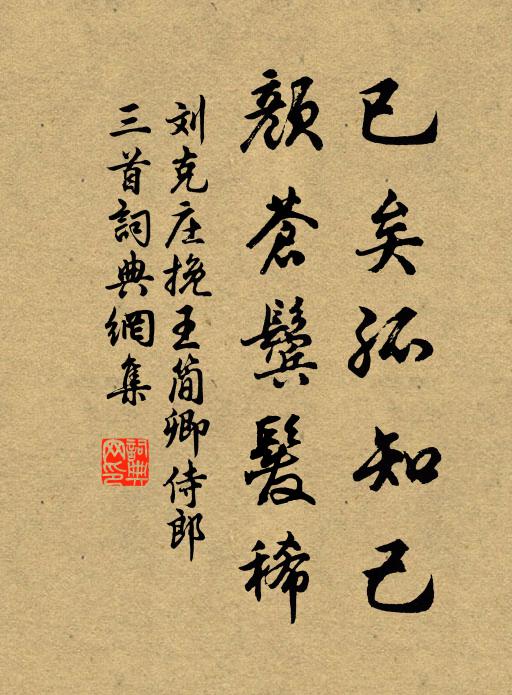 已矣孤知己
颜苍鬓发稀
刘克庄挽王简卿侍郎
三首词典网集
词典网印